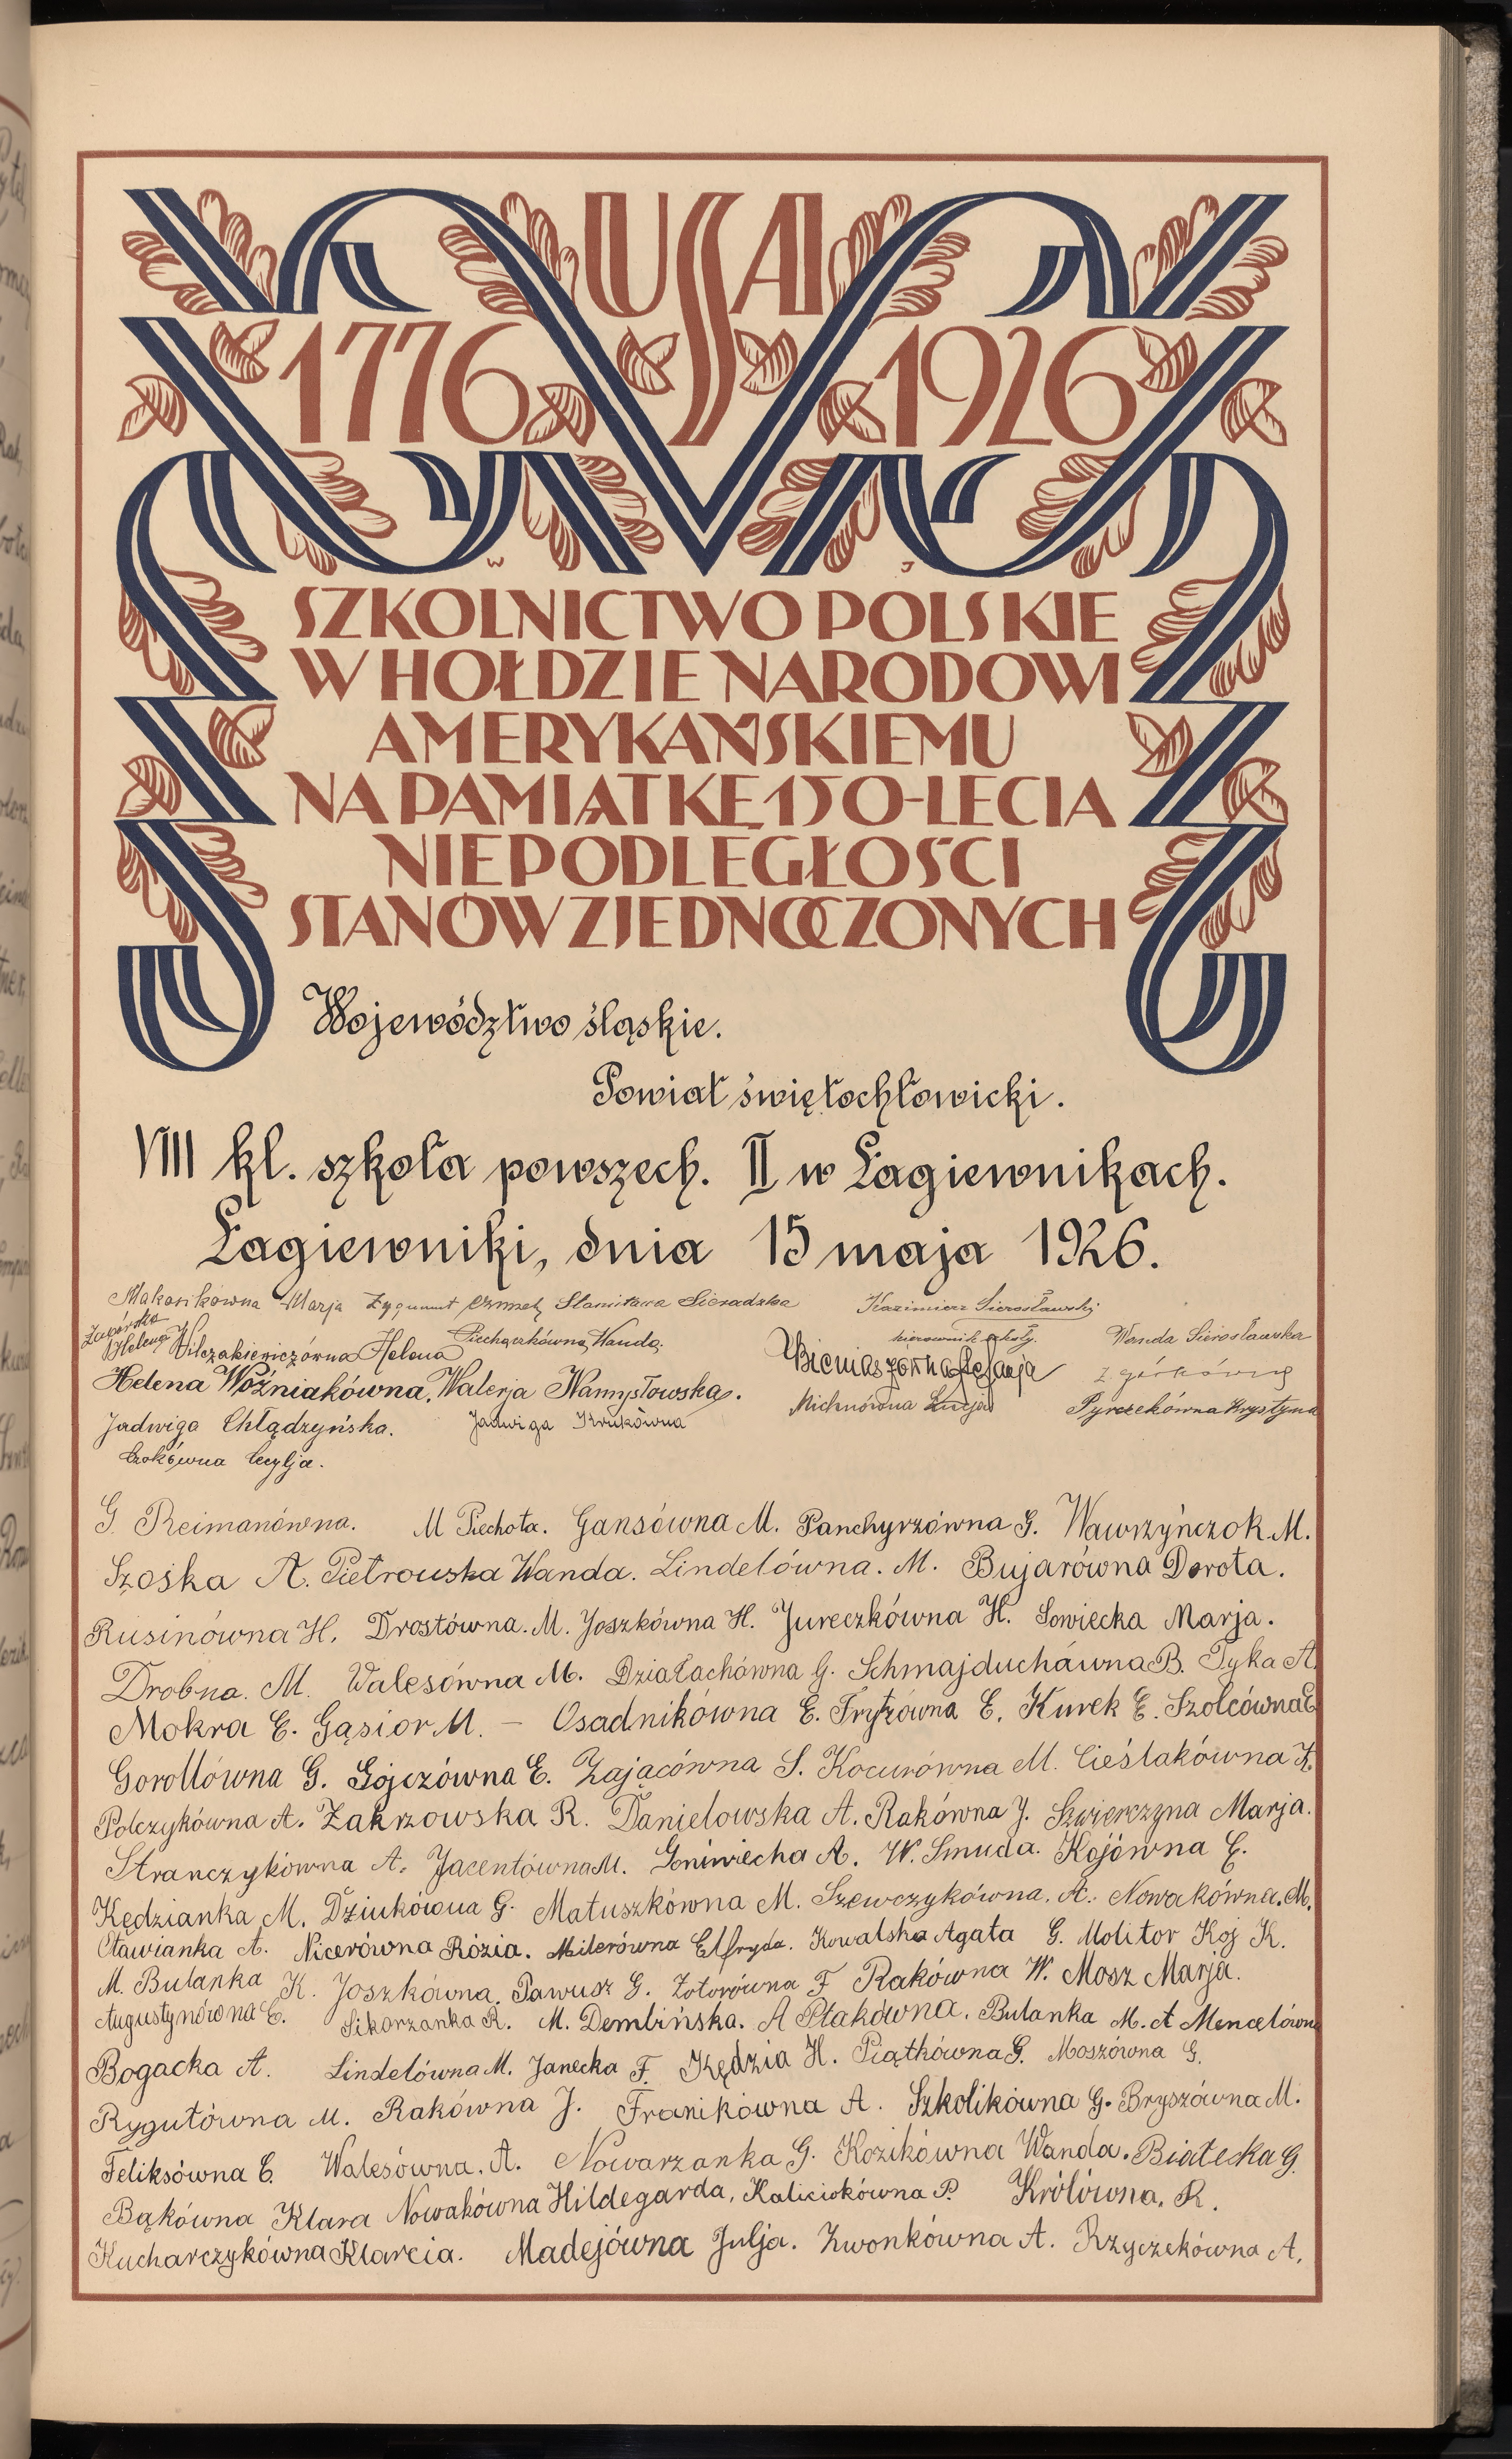 USA
1776 1926
W J
SZKOLNICTWO POLSKIE
W HOŁDZIE NARODOWI
AMERYKAŃSKIEMU
NA PAMIĄTKĘ 150-LECIA
NIEPODLEGŁOŚCI
STANÓW ZJEDNOCZONYCH
Województwo śląskie.
Powiat świętochłowicki.
VIII kl. szkoła powszech. II w Łagiewnikach.
Łagiewniki, dnia 15 maja 1926.
Makosikówna Marja Zygmunt Stanisława Sieradzka Kazimierz Sierosławski
Zagórska Helena Wilczakiewiczówna Helena Piechaczkówna Wanda. kierownik szkoły. Wanda Sierosławska
Helena Woźniakówna. Walerja Namysłowska. Bieniaszówna Stefanja Zgórkówna
Jadwiga Chłądzyńska. Jadwiga Krukówna Michnówna Łucja Pyrczekówna Krystyna
Czokówna Cecylja.
G. Reimanówna. M Piechota. Gansówna M. Panchyrzówna G. Wawrzyńczok M.
Szośka A. Pietrowska Wanda. Lindelówna. M. Bujarówna Dorota.
Rusinówna H. Drostówna. M. Joszkówna H. Jureczkówna H. Sowiecka Marja.
Drobna. M. Walesówna M. Działachówna G. Schmajduchówna B. Tyka A.
Mokra E. Gąsior M. – Osadnikówna E. Frytzówna E. Kurek E. Szolcówna E
Gorollówna G. Gojczówna E. Zającówna S. Kocurówna M. Cieślakówna K.
Polczykówna A. Zakrzowska R. Danielowska A. Rakówna J. Szwierczyna Marja.
Stranczykówna A. Jacentówna M. Goniwiecha A. W. Smuda. Kojówna E.
Kędzianka M. Dziukówna G. Matuszkówna M. Szewczykówna. A. Nowakówna. M.
Otawianka A. Nicerówna Rózia. Milerówna Elfryda. Kowalska Agata G. Molitor Koj K.
M. Bulanka K. Joszkówna. Pawusz G. Zotorówna F Rakówna W. Mosz Marja.
Augustynówna E. Sikorzanka R. M. Dembińska. A Ptakówna. Bulanka M. A Mencelówna
Bogacka A. Lindelówna M. Janecka F. Kędzia H. Piątkówna G. Moszówna G.
Rygutówna M. Rakówna J. Franikówna A. Szkolikówna G. Bryszówna M.
Feliksówna E. Walesówna. A. Nowarzanka G. Kozikówna Wanda. Białecka G.
Bąkówna Klara Nowakówna Hildegarda, Kaliciokówna P. Królówna. R.
Kucharczykówna Klarcia. Madejówna Julja. Zwonkówna A. Rzyczkówna A.